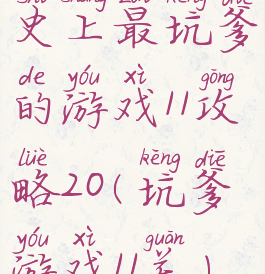 shǐ shàng zuì kēng diē
史上最坑爹
de yóu xì gōng
的游戏11攻
lüè kēng diē
略20(坑爹
yóu xì guān
游戏11关)